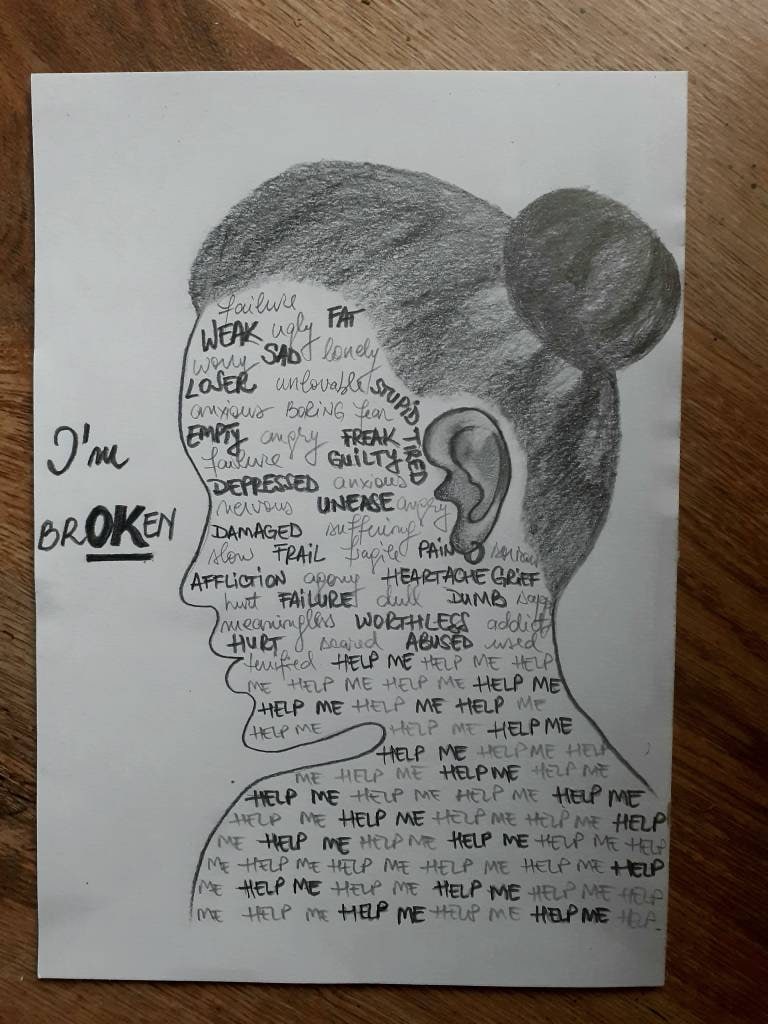 failure
WEAK ugly FAT
worry SAD lonely
LOSER unlovable STUPID
anxious BORING fear
EMPTY angry FREAK TIRED
failure GUILTY
DEPRESSED anxious
nervous UNEASE angry
I'm
BROKEN
DAMAGED suffering
slow FRAIL fragile PAIN
AFFLICTION agony HEARTACHE GRIEF
hurt FAILURE dull DUMB
meaningless WORTHLESS addict
HURT scared ABUSED used
terrified HELP ME HELP ME HELP
ME HELP ME HELP ME HELP ME
HELP ME HELP ME HELP ME
HELP ME HELP ME HELP ME
HELP ME HELP ME HELP
ME HELP ME HELP ME HELP ME
HELP ME HELP ME HELP ME HELP ME
HELP ME HELP ME HELP ME HELP
ME HELP ME HELP ME HELP ME HELP ME HELP
ME HELP ME HELP ME HELP ME HELP ME HELP
ME HELP ME HELP ME HELP ME HELP ME HELP
ME HELP ME HELP ME HELP ME HELP ME HELP